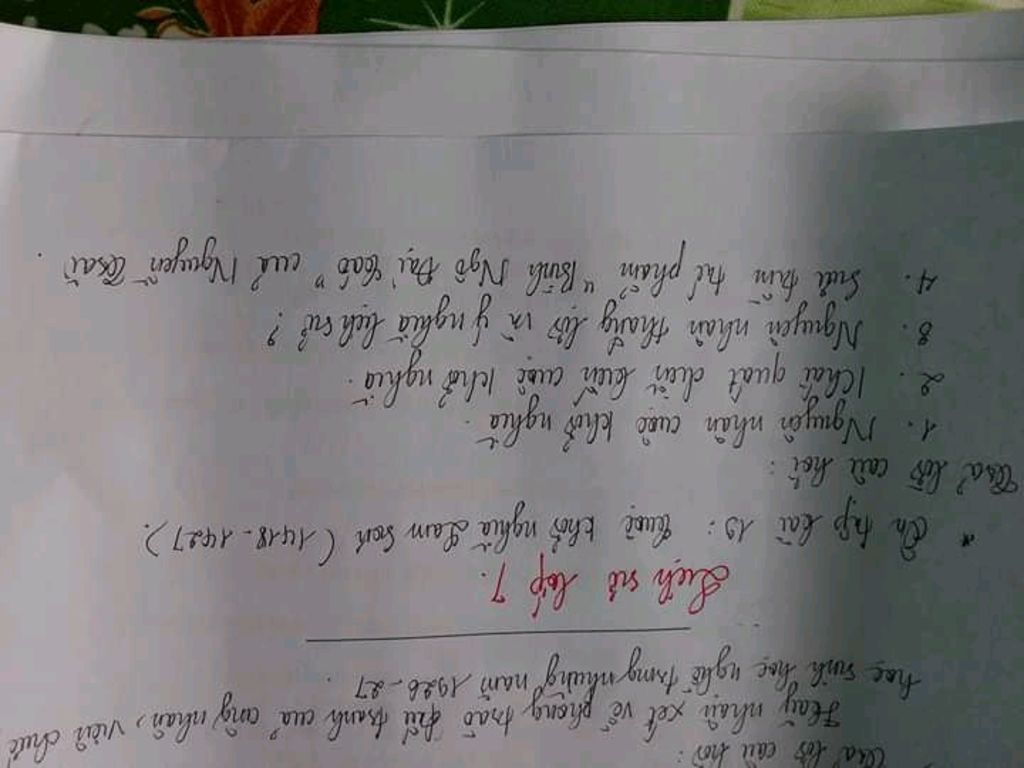 Trả lời câu hỏi:
Hãy nhận xét về phong trào đấu tranh của công nhân, viên chức
học sinh học nghề trong những năm 1926-27.
Lịch sử lớp 7.
* Ôn tập bài 19: Cuộc khởi nghĩa Lam Sơn (1418-1427).
Trả lời câu hỏi:
1. Nguyên nhân cuộc khởi nghĩa.
2. Khái quát diễn biến cuộc khởi nghĩa.
3. Nguyên nhân thắng lợi và ý nghĩa lịch sử?
4. Sưu tầm tác phẩm "Bình Ngô Đại Cáo" của Nguyễn Trãi.